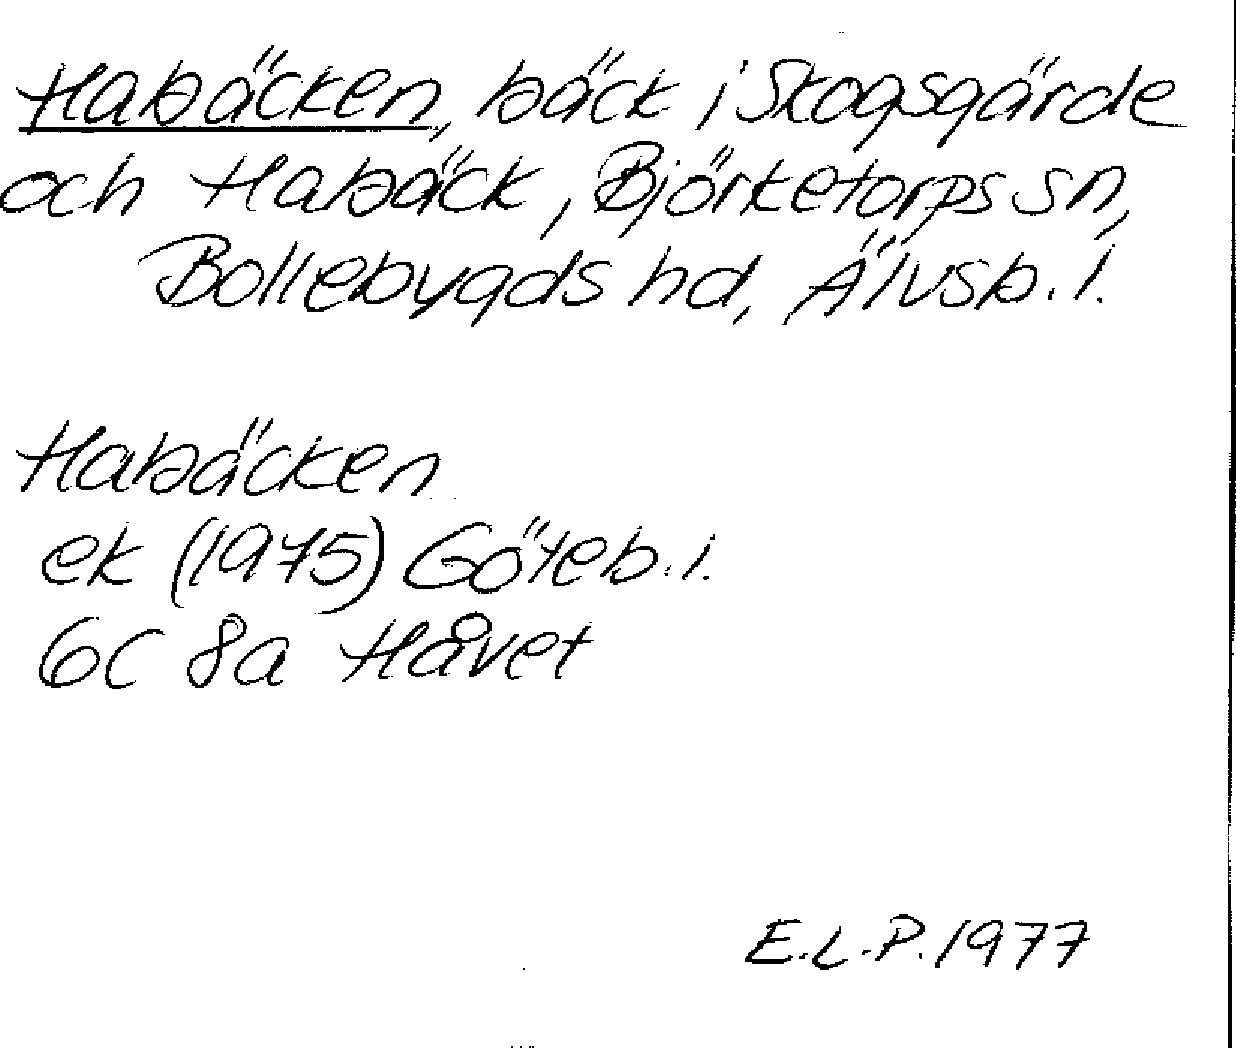 Habäcken, bäck i Skogsgärde
och Habäck, Björketorps sn,
Bollebygds hd, Älvsb. l.
Habäcken
ek (1975) Göteb. l.
6C 8a Håvet
E.L.P. 1977